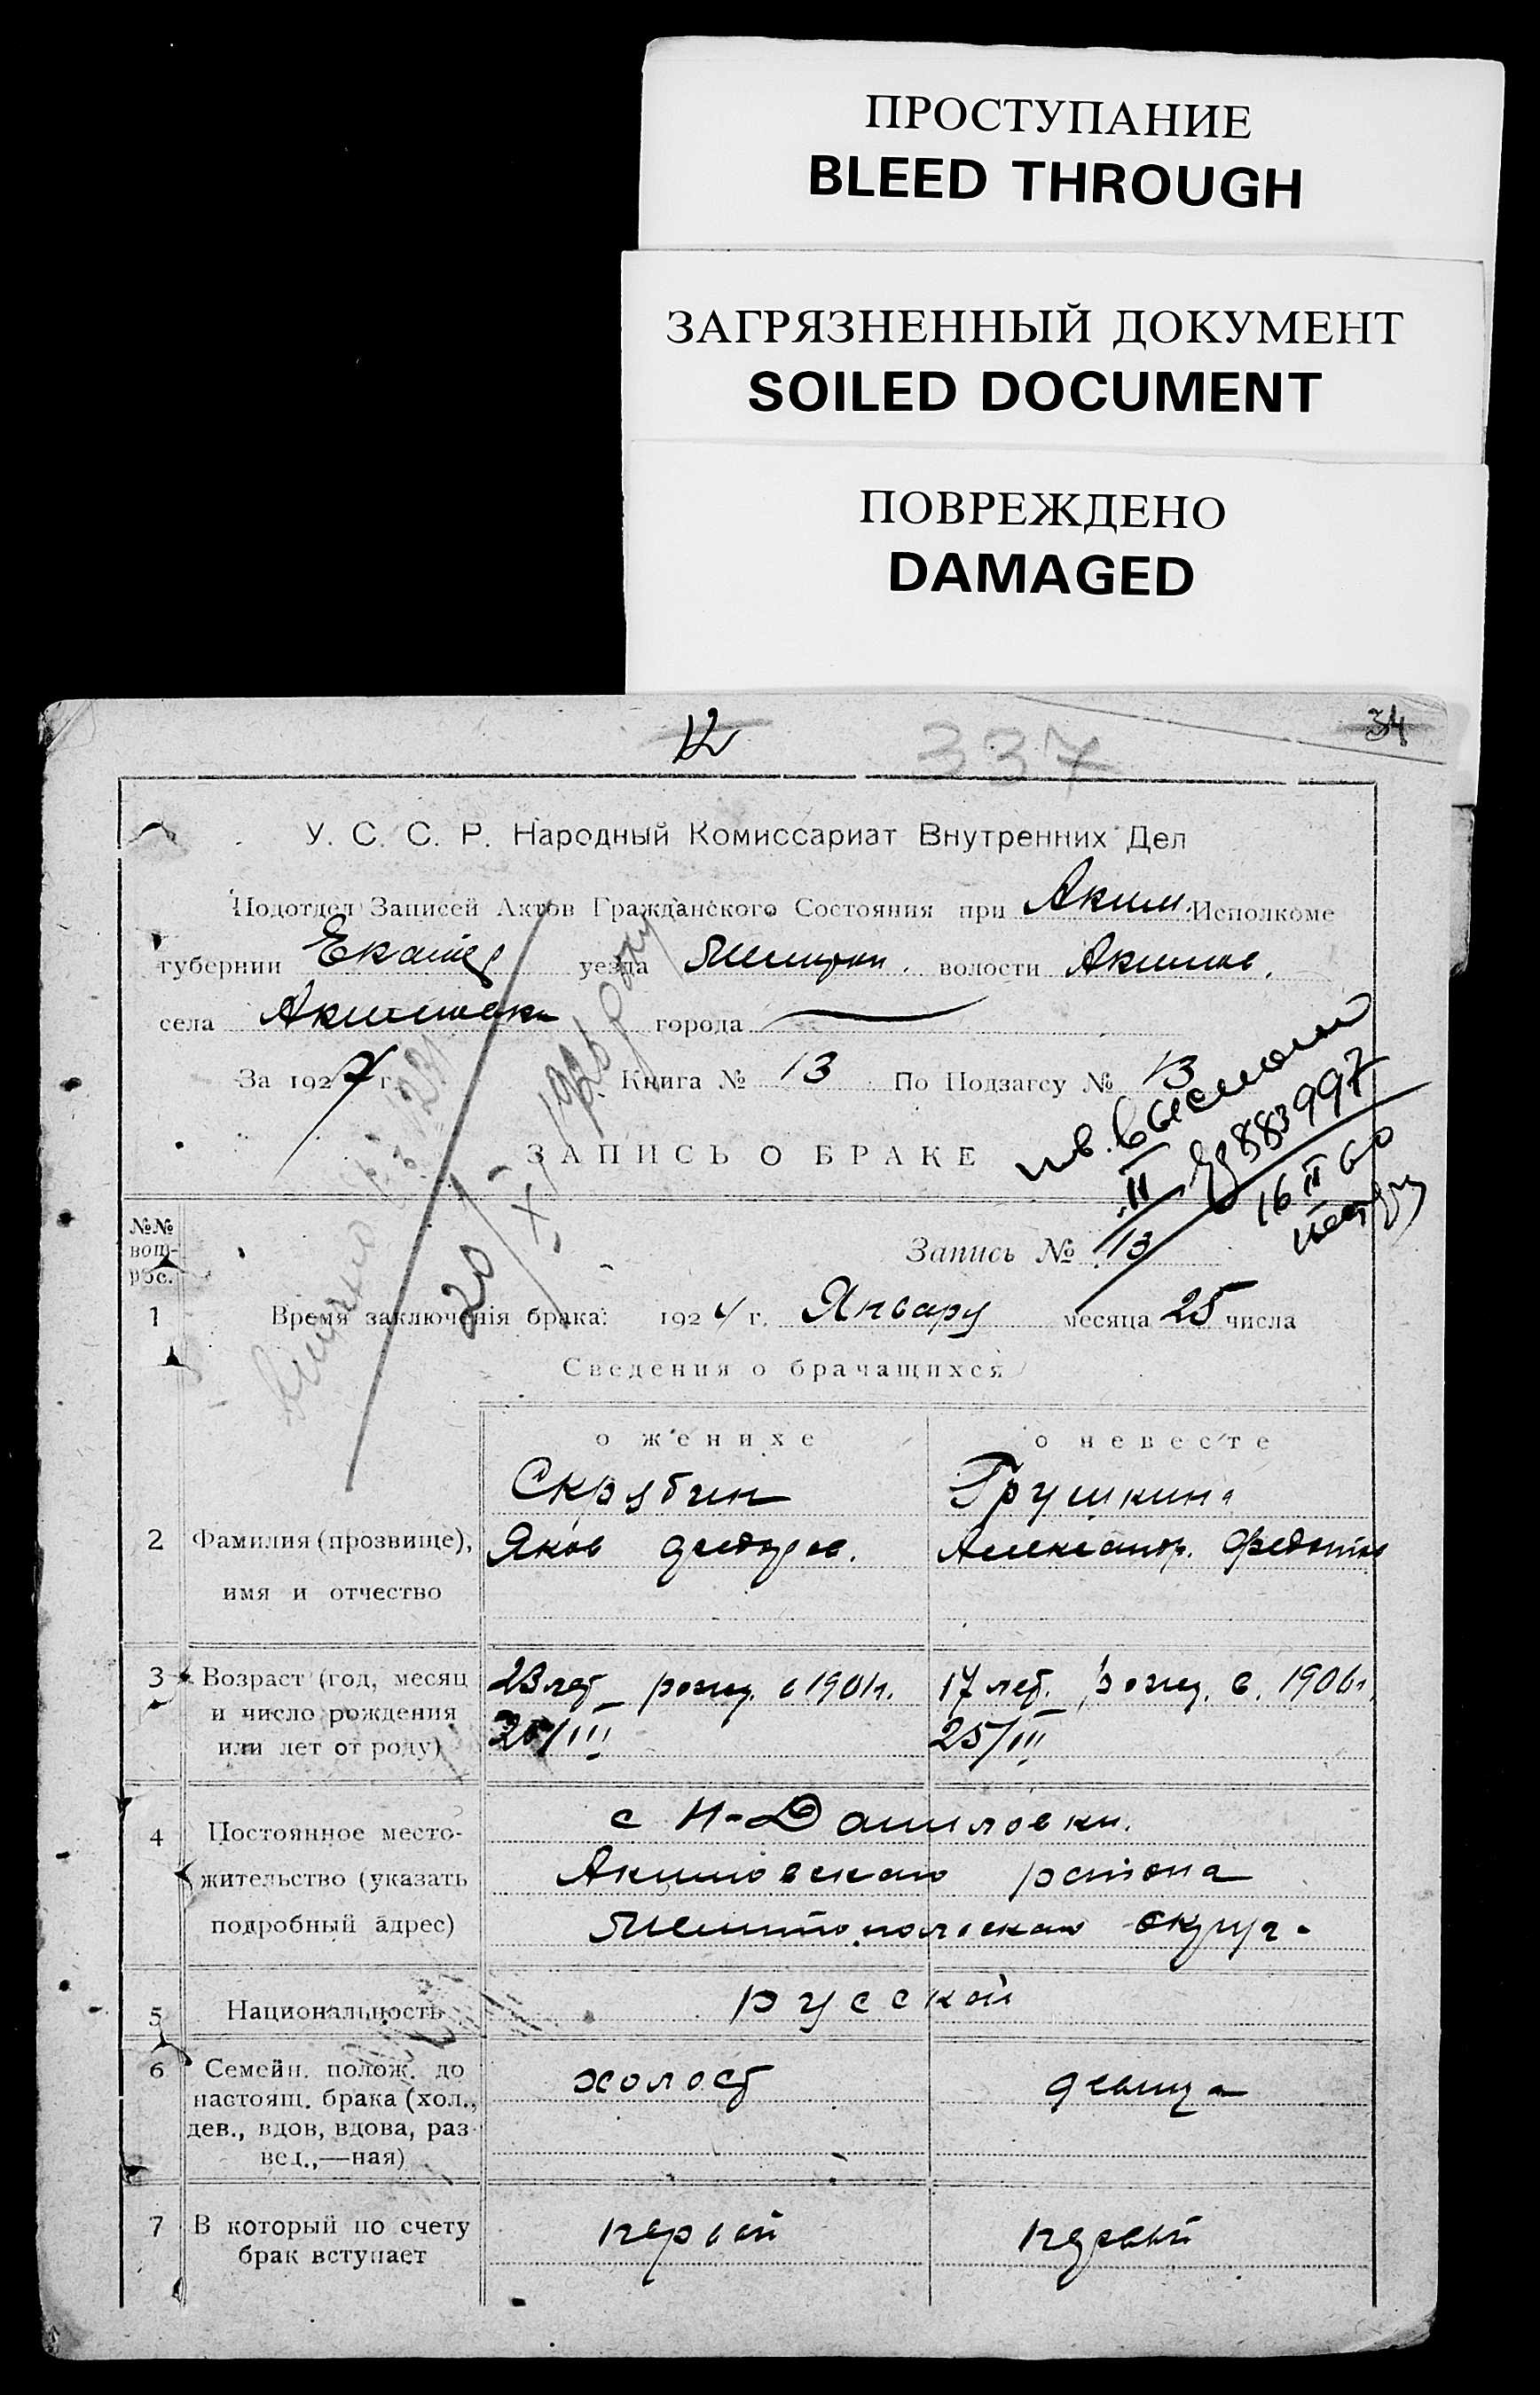 ПРОСТУПАНИЕ
BLEED THROUGH
ЗАГРЯЗНЕННЫЙ ДОКУМЕНТ
SOILED DOCUMENT
ПОВРЕЖДЕНО
DAMAGED
12
337
34
У. С. С. Р. Народный Комиссариат Внутренних Дел
Подотдел Записей Актов Гражданского Состояния при Аким. Исполкоме
губернии Екатер уезда Мелитоп. волости Акимов.
села Акимовки города
За 192 г. Книга № 13 По Подзагсу № 13
ЗАПИСЬ О БРАКЕ
883997
16 II 60
№№ вопрос.
Запись № 13
1 Время заключенія брака: 1924 г. Январу месяца 25 числа
Сведения о брачащихся
о женихе о невесте
Скрябин Грушкина
2 Фамилия (прозвище), Яков Федоров. Александр. Федотов
имя и отчество
3 Возраст (год, месяц 23 лет рожд. в 1901 г. 17 лет. рожд. в. 1906 г.
и число рождения 25/III 25/III
или лет от роду)
4 Постоянное место- с Н-Даниловки.
жительство (указать Акимовского района
подробный адрес) Мелитопольского округа
5 Национальность русской
6 Семейн. полож. до холост девица
настоящ. брака (хол.,
дев., вдов, вдова, раз-
вед.,—ная)
7 В который по счету первый первый
брак вступает